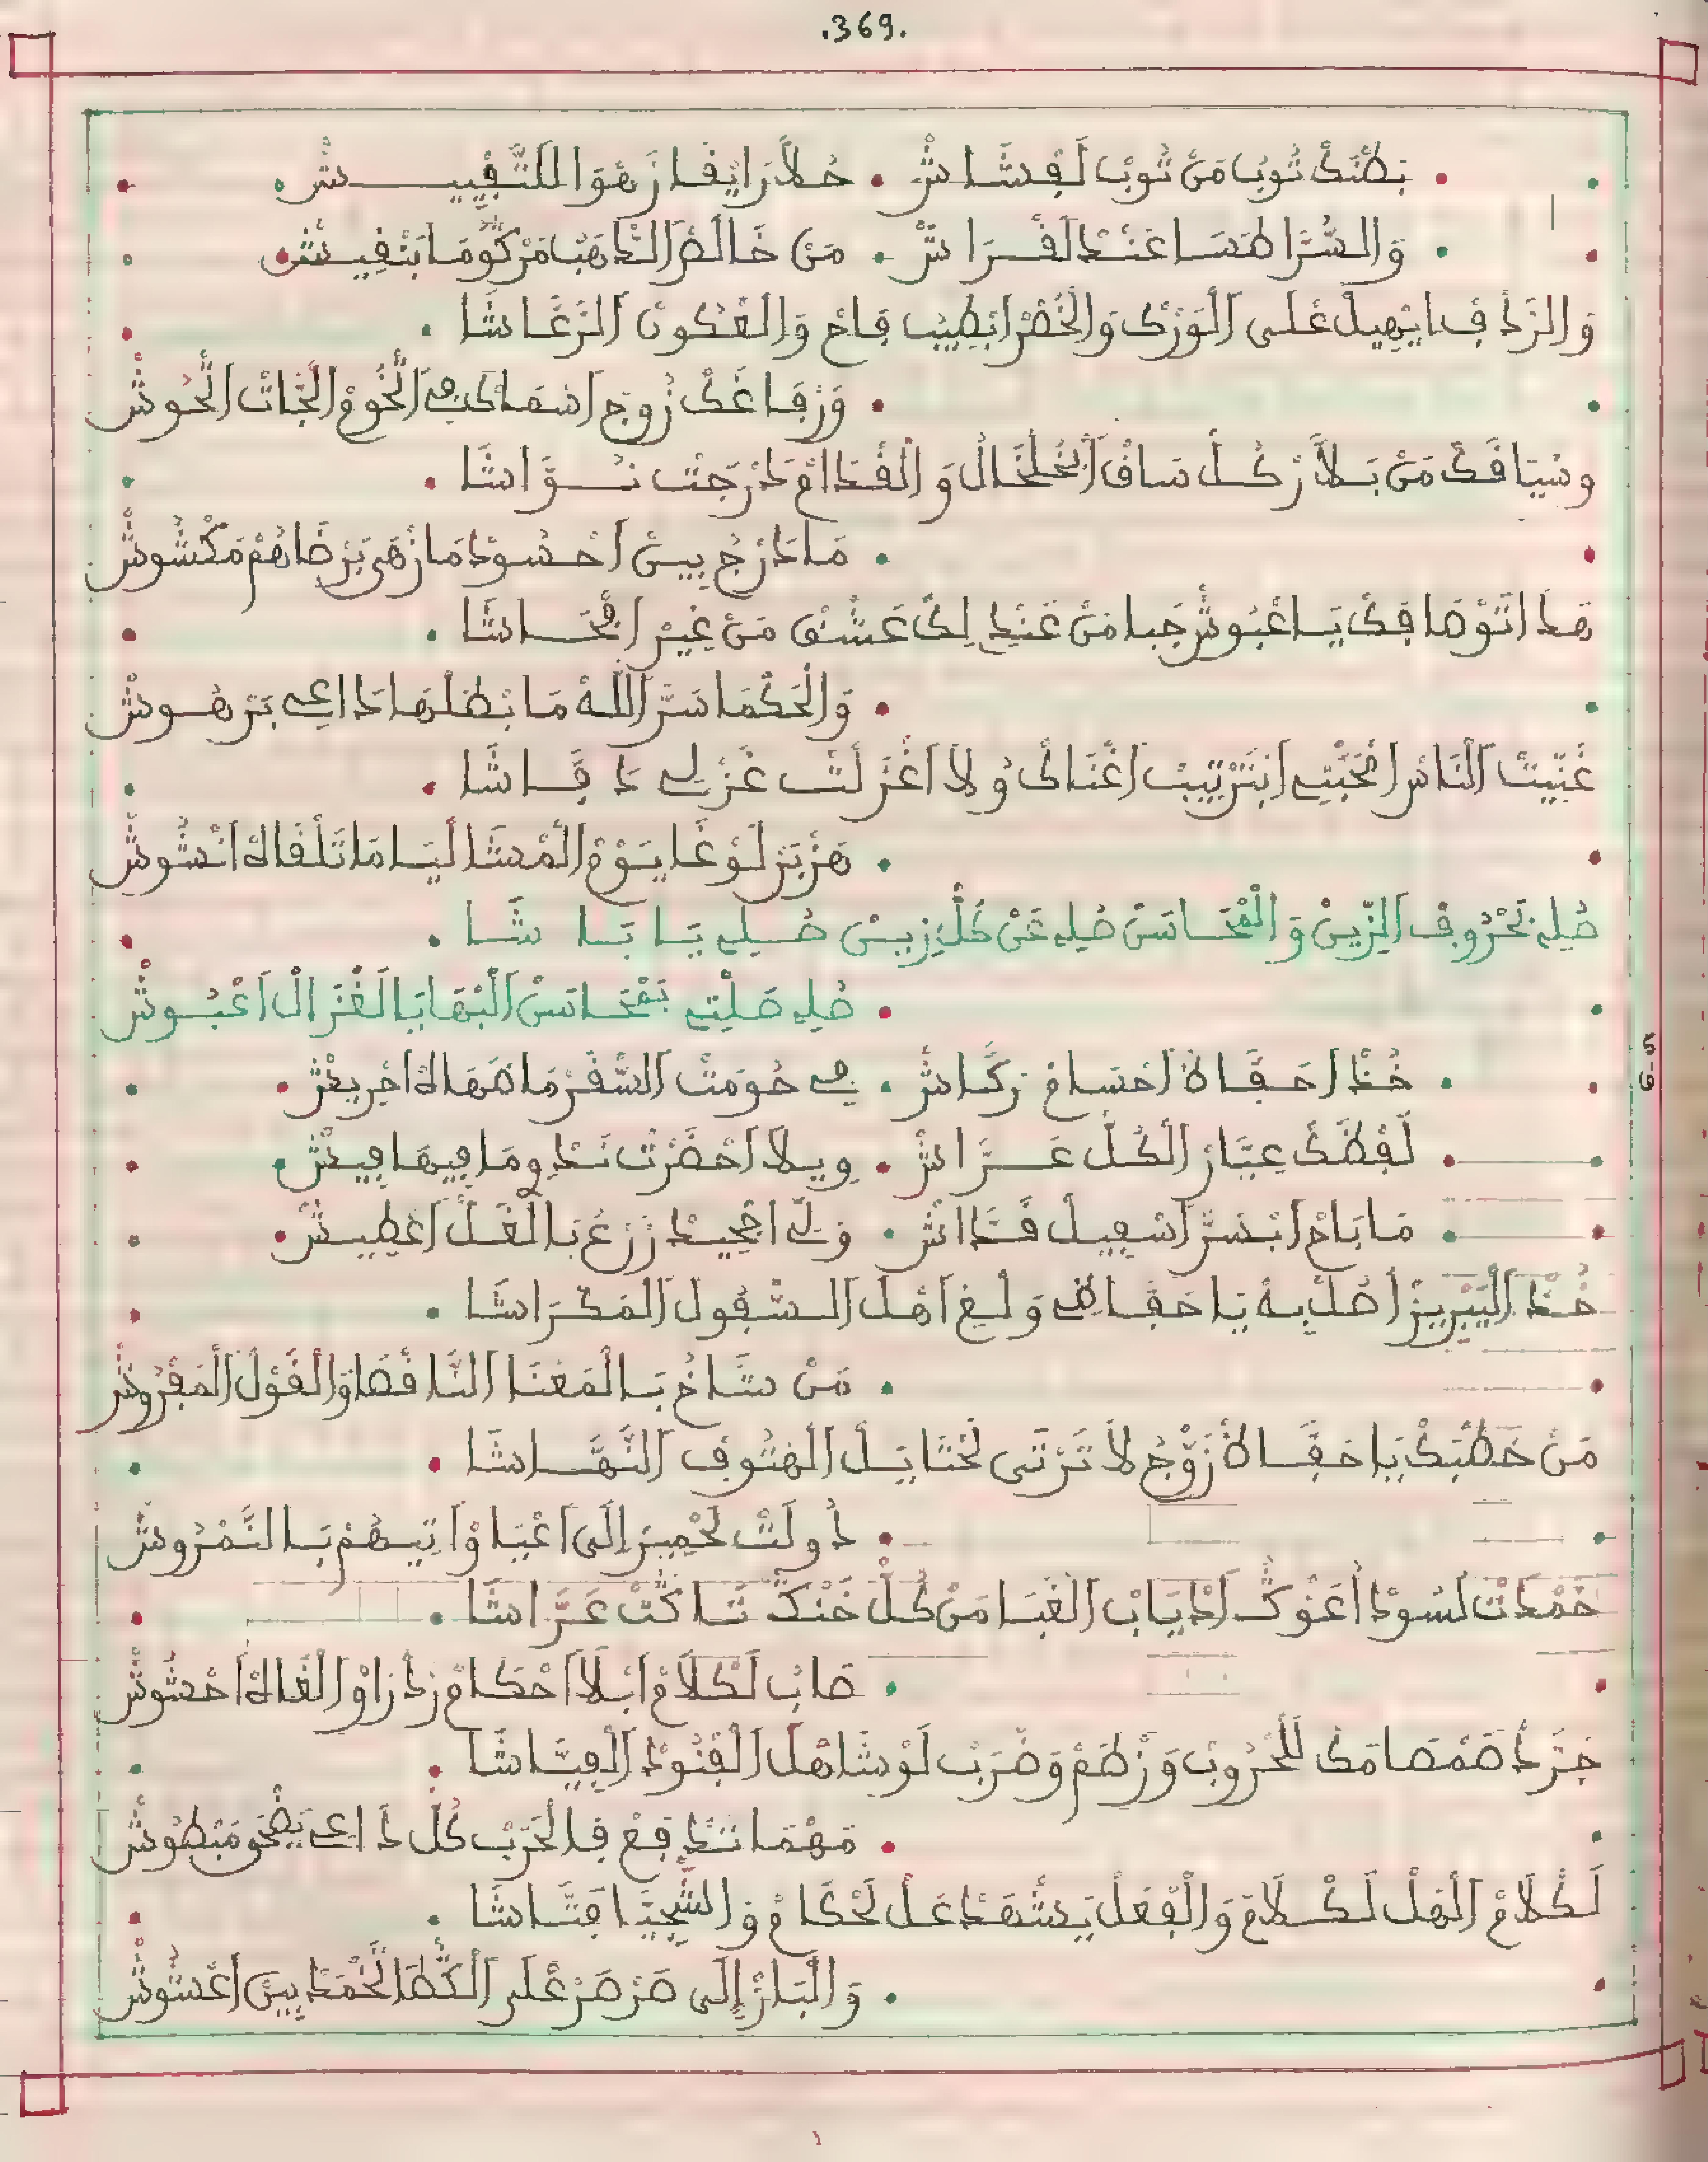 .369.
بَطْنَكْ ثُوبْ مَنْ ثُوبْ لَفْشَاشْ . حُلاَّ رَايْقَا زَهْوَا لِلتَّفْيِيشْ .
وَالسُّرَّا طَسَا عَنْدْ لَفْرَاشْ . مَنْ خَالَصْ الذَّهَبْ مَرْكُومَا بَنْفِيشْ
وَالرَّدْفْ ايْهِيلْ عْلَى الْوَرْكْ وَالْخُصْرْ ابْطِيبْ فَاحْ وَالْعْكُونْ الرَّعَّاشَا .
. وَرْفَاغَكْ زُوجْ اسْمَاكْ فِي
وسْيَاقَكْ مَنْ بَلاَّرْ كُلْ سَاقْ ابْخُلْخَالْ وَالْقْدَامْ دَرْجَتْ نُوَّاشَا .
. مَا دَرْجُ بِينْ احْسُودْ مَا زْهَى بَرْضَاهُمْ مَكْشُوشْ
هَذَا تَوْصَافَكْ يَا عْبُوشْ جَبَا مَنْ عَنْدِ لِكْ عَشْقْ مَنْ غِيرْ افْحَاشَا .
. وَالْحَكْمَا سَرّ اللَّهْ مَا بْطَلْهَا دَاعِي بَرْهُوشْ
غَنِّيتْ النَّاسْ امْحَبْتِي ابْتَرْتِيبْ اغْنَاكْ وُلاَ اغْزَلْتْ غَزْلِي دَقَّاشَا .
. هَزْبَرْ لَوْغَا يَوْمْ الْمْشَالْيَا مَا تَلْقَاهْ انْشُوشْ
صُلِي بَحْرُوفْ الزِّينْ وَالْمْحَاسَنْ صُلِي عَنْ كُلّْ زِينْ صُلِي يَا بَاشَا .
. صُلِي صَلْتِي بَمْحَاسَنْ الْبْهَا يَا لَغْزَالْ اعْبُوشْ
. خُذْ احَفَّاظْ احْسَامْ رَكَّاشْ . فِي حُومَتْ السَّفَرْ مَا ضَهَاهْ
. لَفْظَكْ عِيَّارْ الْكُلْ عَرَّاشْ . وِيلاَ احْضَرْتْ نَدِّ وِمَا فِيهَا فِيشْ
. مَا بَاحْ ابْسَرّ اسْفِيلْ فَدَّاشْ . وَلِّي اجْحِيدْ زَرْعُ بَالْغَلْ اعْطِيشْ .
خُذْ الَبْرِيزْ اصُلْ بِهْ يَا حَفَّاظِي وَلْغِ اهْلْ السْفُولْ الْمَكْرَاشَا .
. مَنْ شَاخُ بَالْمَعْنَا النَّاقْصَا وَالْقَوْلْ الْمَفْرُوشْ
مَنْ خَطْبَكْ يَا حَفَّاظْ زَوّْجُ لاَ تَرْتَى لَحْتَايَلْ الْهْتُوفْ النَّهَّاشَا .
. دُولَتْ لَحْمِيرْ إلَى اعْيَاوْ اتِيهُمْ بَالنَّمْرُوشْ
خَمْدَتْ لَسُودْ اعَوْكُتْ ادْيَابْ الْغْبَا مَنْ كُلْ خَنْكَتْ تَاكَتْ عَرَّاشَا .
. صَابْ لَكْلاَمْ ابْلاَ احْكَامْ رَدْرَاوْ الْغَاهْ احْشُوشْ
جَرَّدْ صَمْصَامَكْ لَلْحْرُوبْ وَزْطَمْ وَضْرَبْ لَوْشَاهْلْ الْفْنُودْ الْفِيَّاشَا .
. مَهْمَا تَنْدْفَعْ فِالْحَرْبْ كُلْ دَاعِي يَضْحَى مَبْطُوشْ
لَكْلاَمْ الْهَلْ لَكْلاَمْ وَالْفْعَلْ يَشْهَدْ عَلْ لَحْكَامْ وَالسّْجِيَّا فَتَّاشَا .
. وَالْبَازْ إلَى صَرْصَرْ عْلَى الْكْطَا الْخَمْدْ بِينْ اعْشُوشْ
5-6